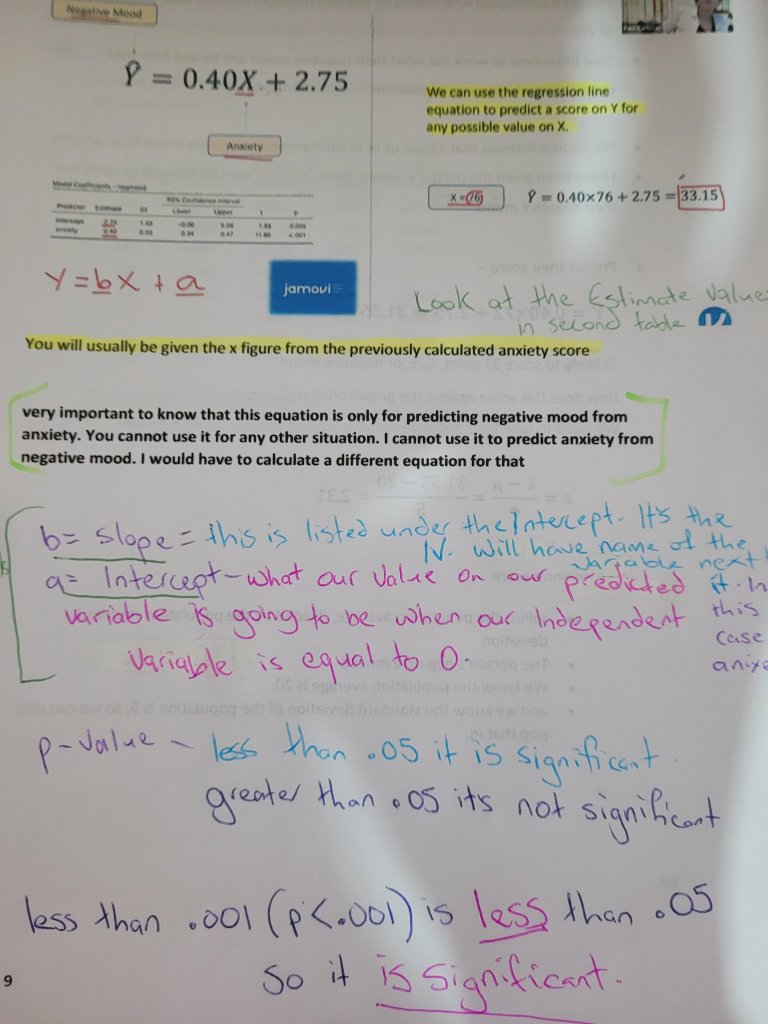 Negative Mood
Ŷ = 0.40X + 2.75
Anxiety
We can use the regression line
equation to predict a score on Y for
any possible value on X.
X = 76
Ŷ = 0.40×76 + 2.75 = 33.15
Model Coefficients - negmood
95% Confidence Interval
Predictor Estimate SE Lower Upper t p
Intercept 2.75 1.43 -0.06 5.56 1.93
anxiety 0.40 0.03 0.34 0.47 11.86 < .001
Y = bX + a
jamovi
Look at the Estimate Value
in second table
You will usually be given the x figure from the previously calculated anxiety score
very important to know that this equation is only for predicting negative mood from
anxiety. You cannot use it for any other situation. I cannot use it to predict anxiety from
negative mood. I would have to calculate a different equation for that
b = slope = this is listed under the Intercept. It's the
IV. Will have name of the
variable next
it. In
this
case
a = Intercept - what our Value on our predicted
variable is going to be when our Independent
Variable is equal to 0.
p-value - less than .05 it is significant.
greater than .05 its not significant
less than .001 (p<.001) is less than .05
So it is significant.
9